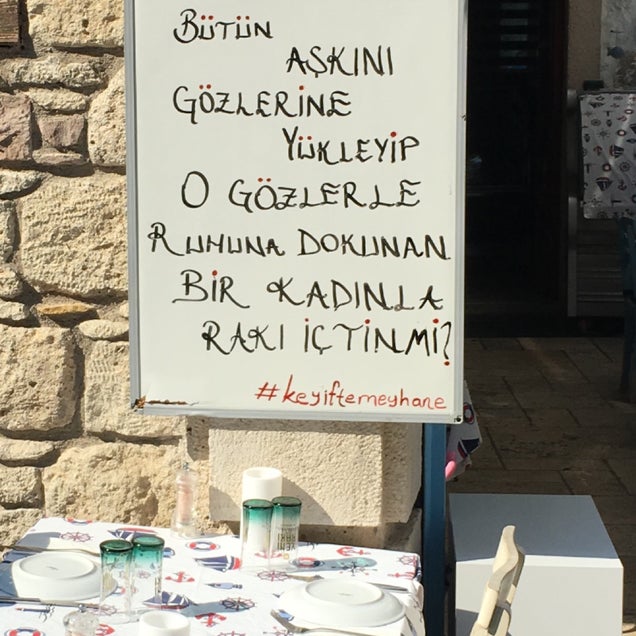 BÜTÜN
AŞKINI
GÖZLERİNE
YÜKLEYİP
O GÖZLERLE
RUHUNA DOKUNAN
BİR KADINLA
RAKI İÇTİNMİ?
#keyiftemeyhane
YENİ
RAKI